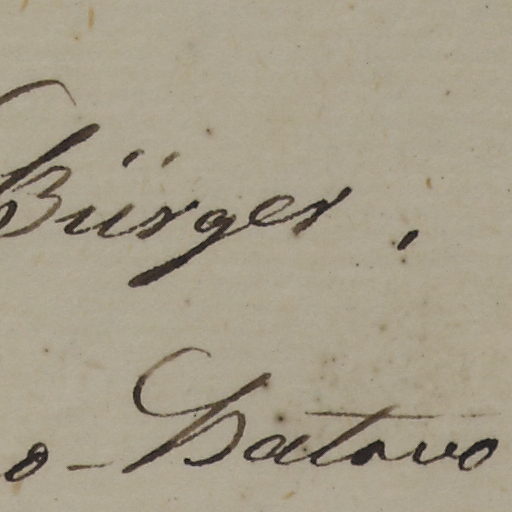 Bürger,
o-Batavo